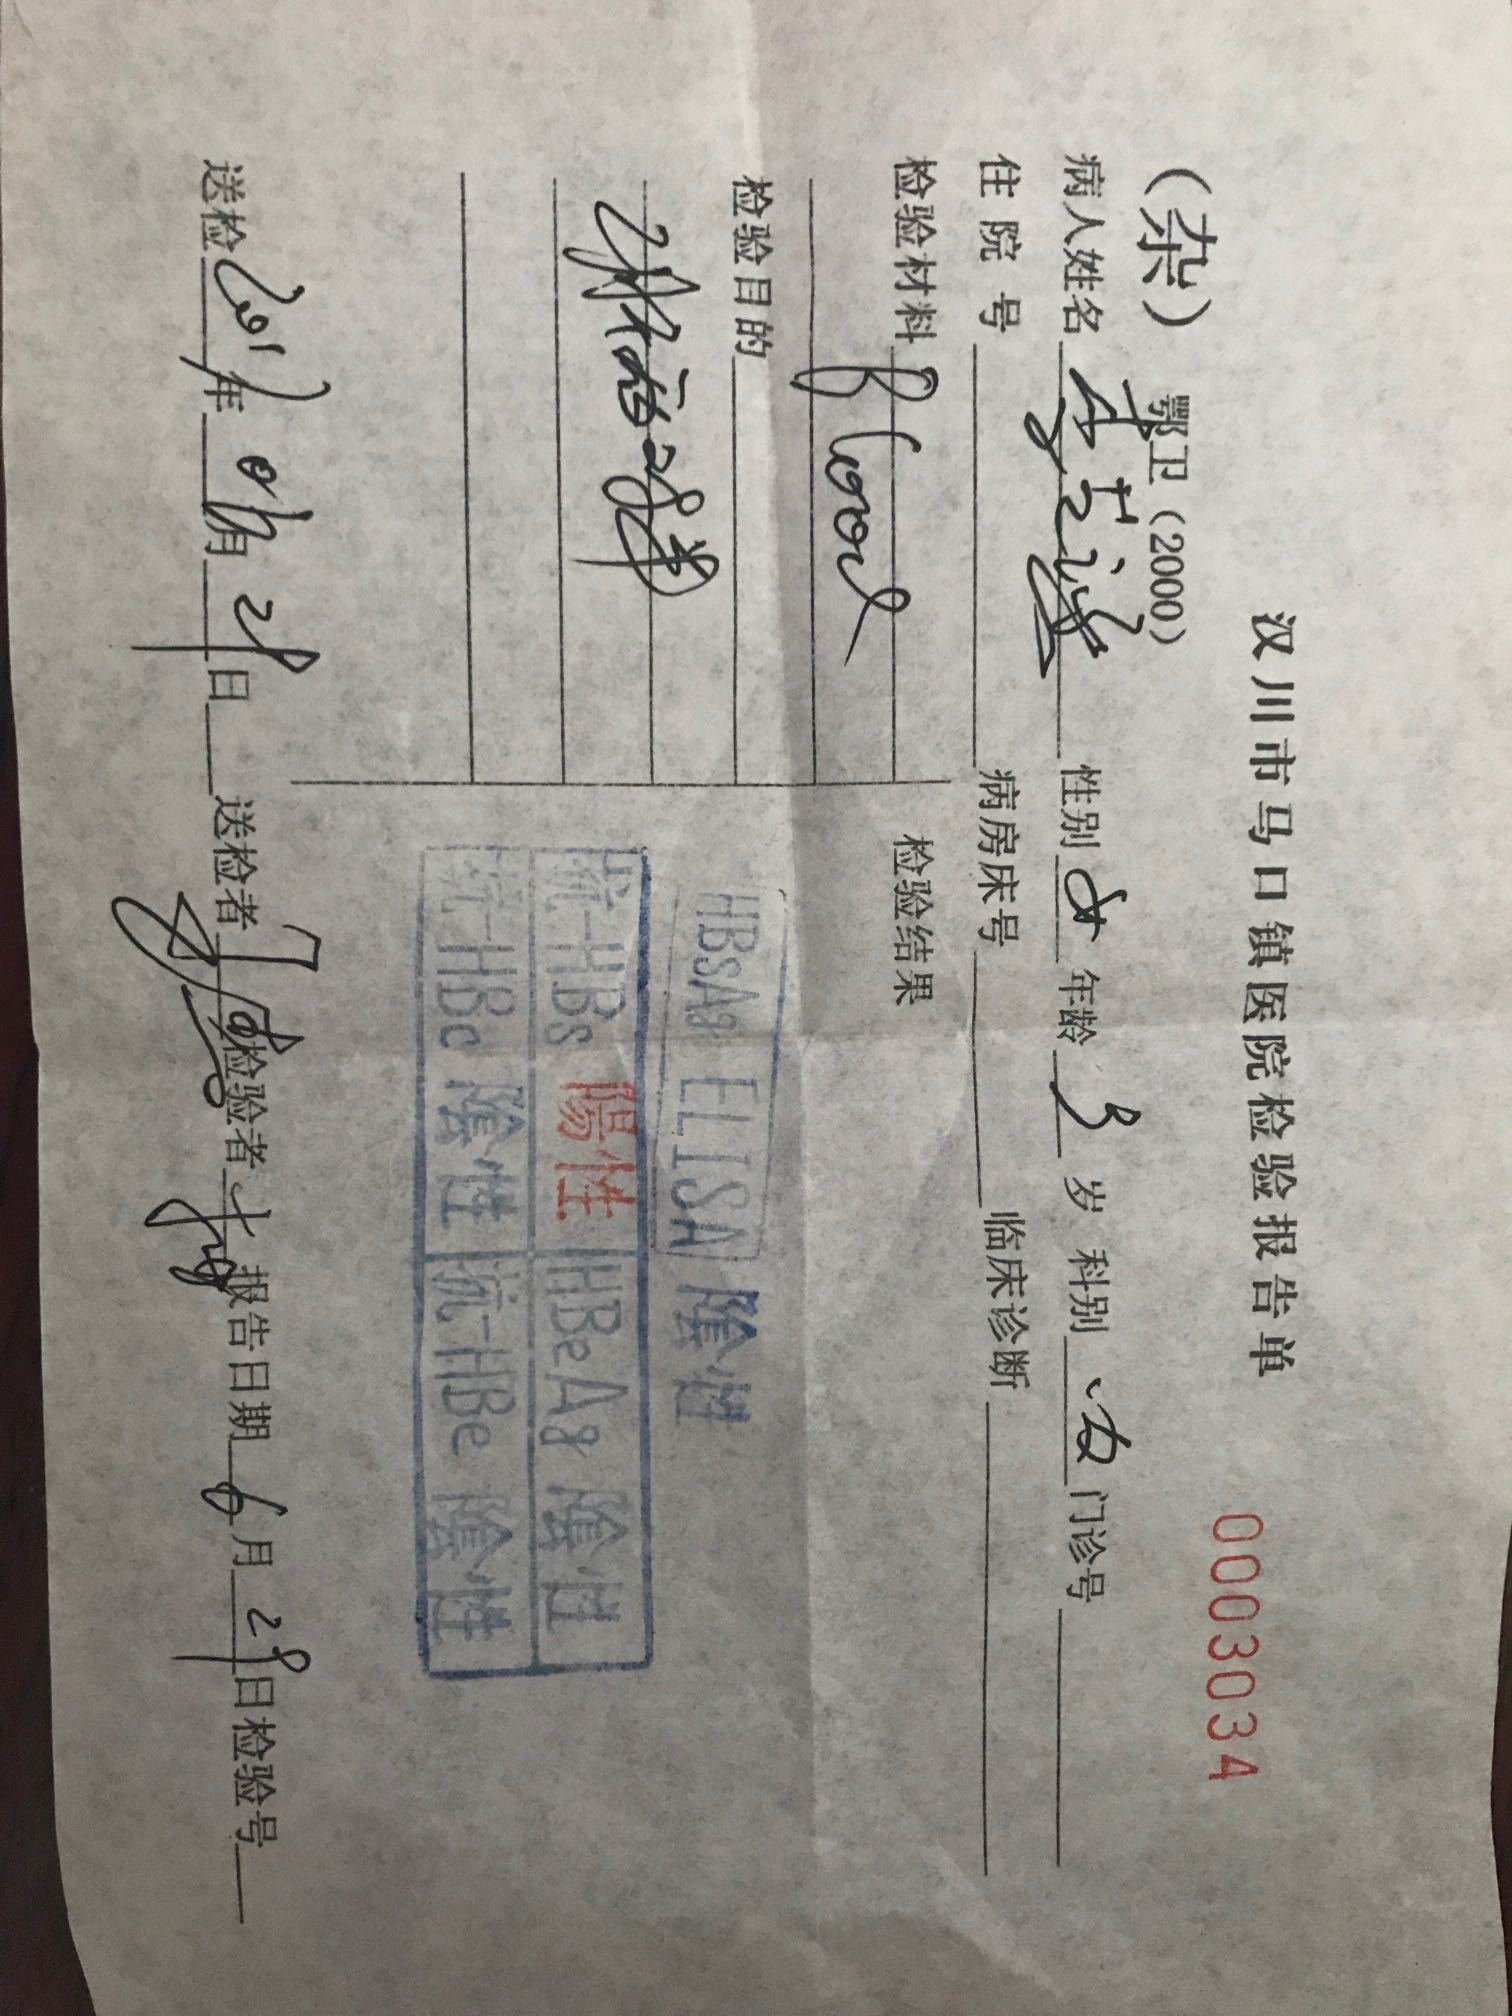 汉川市马口镇医院检验报告单
(杂) 鄂卫(2000) 0003034
病人姓名 李 性别 女 年龄 3 岁 科别 内 门诊号
住院号 病房床号 临床诊断
检验材料 Blood 检验结果
HBsAg ELISA 陰性
检验目的
抗-HBs 陽性 HBeAg 陰性
抗-HBc 陰性 抗-HBe 陰性
送检 2001 年 6 月 28 日 送检者 检验者 报告日期 6 月 28 日 检验号